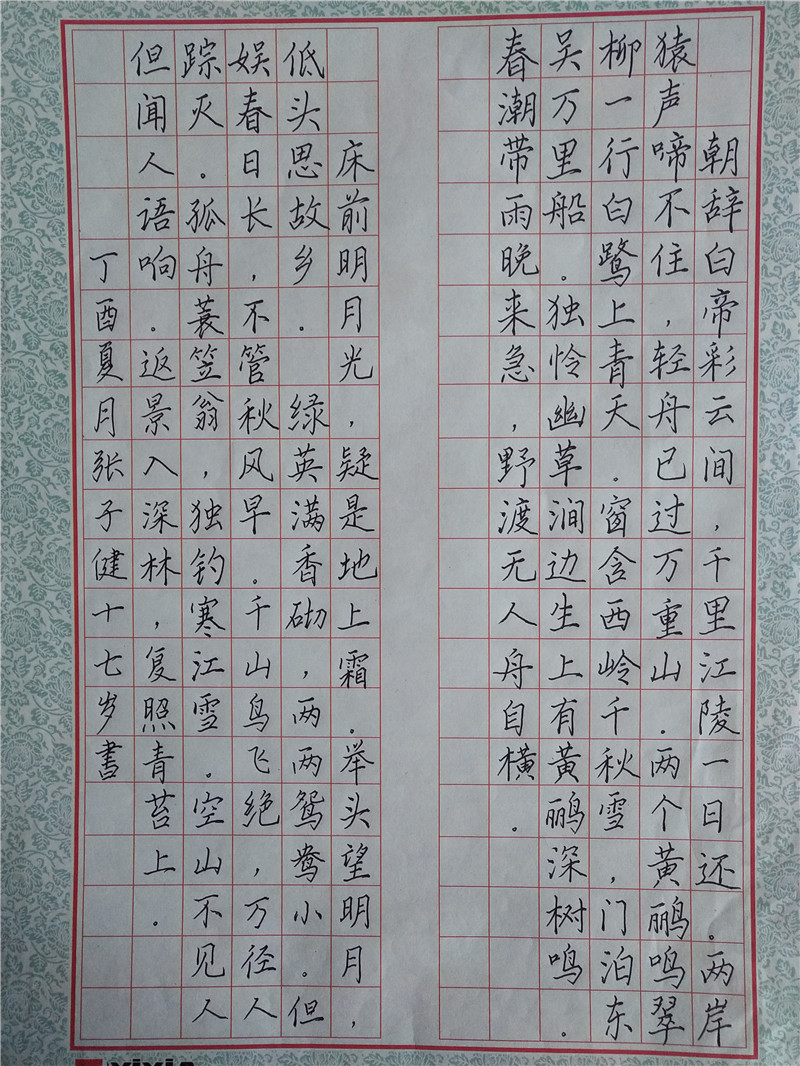 朝辞白帝彩云间，千里江陵一日还。两岸
猿声啼不住，轻舟已过万重山。两个黄鹂鸣翠
柳一行白鹭上青天。窗含西岭千秋雪，门泊东
吴万里船。独怜幽草涧边生上有黄鹂深树鸣。
春潮带雨晚来急，野渡无人舟自横。
床前明月光，疑是地上霜。举头望明月，
低头思故乡。绿英满香砌，两两鸳鸯小。但
娱春日长，不管秋风早。千山鸟飞绝，万径人
踪灭。孤舟蓑笠翁，独钓寒江雪。空山不见人
但闻人语响。返景入深林，复照青苔上。
丁酉夏月张子健十七岁書